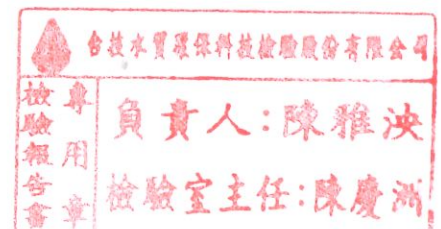 台技水質環保科技檢驗股份有限公司
檢驗報告書
專用章
負責人：陳雅泱
檢驗室主任：陳慶